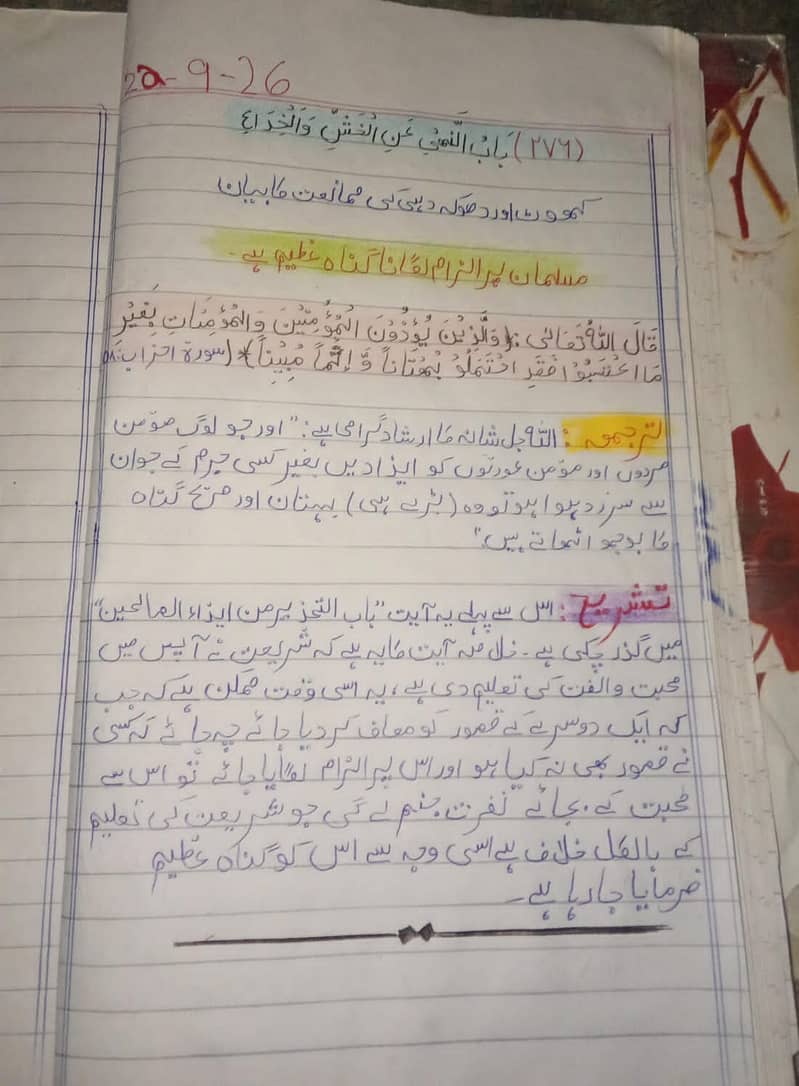 2a-9-26
(٢٧٦) بَابُ النَّهْيِ عَنِ الْغَشِّ وَالْخِدَاعِ
کھوٹ اور دھوکہ دہی کی ممانعت کا بیان
مسلمان پر الزام لگانا گناہ عظیم ہے۔
قَالَ اللّٰهُ تَعَالٰی: ﴿وَالَّذِيْنَ يُؤْذُوْنَ الْمُؤْمِنِيْنَ وَالْمُؤْمِنَاتِ بِغَيْرِ
مَا اكْتَسَبُوْا فَقَدِ احْتَمَلُوْ بُهْتَاناً وَّ اِثْماً مُبِيْناً﴾ (سورة احزاب: ٥٨)
ترجمہ: "اللّٰہ جل شانہ کا ارشاد گرامی ہے: "اور جو لوگ مؤمن
مردوں اور مؤمن عورتوں کو ایذا دیں بغیر کسی جرم کے جو ان
سے سرزد ہوا ہو تو وہ (بڑے ہی) بہتان اور صریح گناہ
کا بوجھ اٹھاتے ہیں"
تشریح: اس سے پہلے یہ آیت "باب التحذير من ايذاء الصالحين"
میں گذر چکی ہے۔ خلاصہ آیت کا یہ ہے کہ شریعت نے آپس میں
محبت و الفت کی تعلیم دی ہے، یہ اسی وقت ممکن ہے کہ جب
کہ ایک دوسرے کے قصور کو معاف کر دیا جائے چہ جائے کہ کسی
نے قصور بھی نہ کیا ہو اور اس پر الزام لگایا جائے تو اس سے
محبت کے بجائے نفرت جنم لے گی جو شریعت کی تعلیم
کے بالکل خلاف ہے اسی وجہ سے اس کو گناہ عظیم
فرمایا جا رہا ہے۔